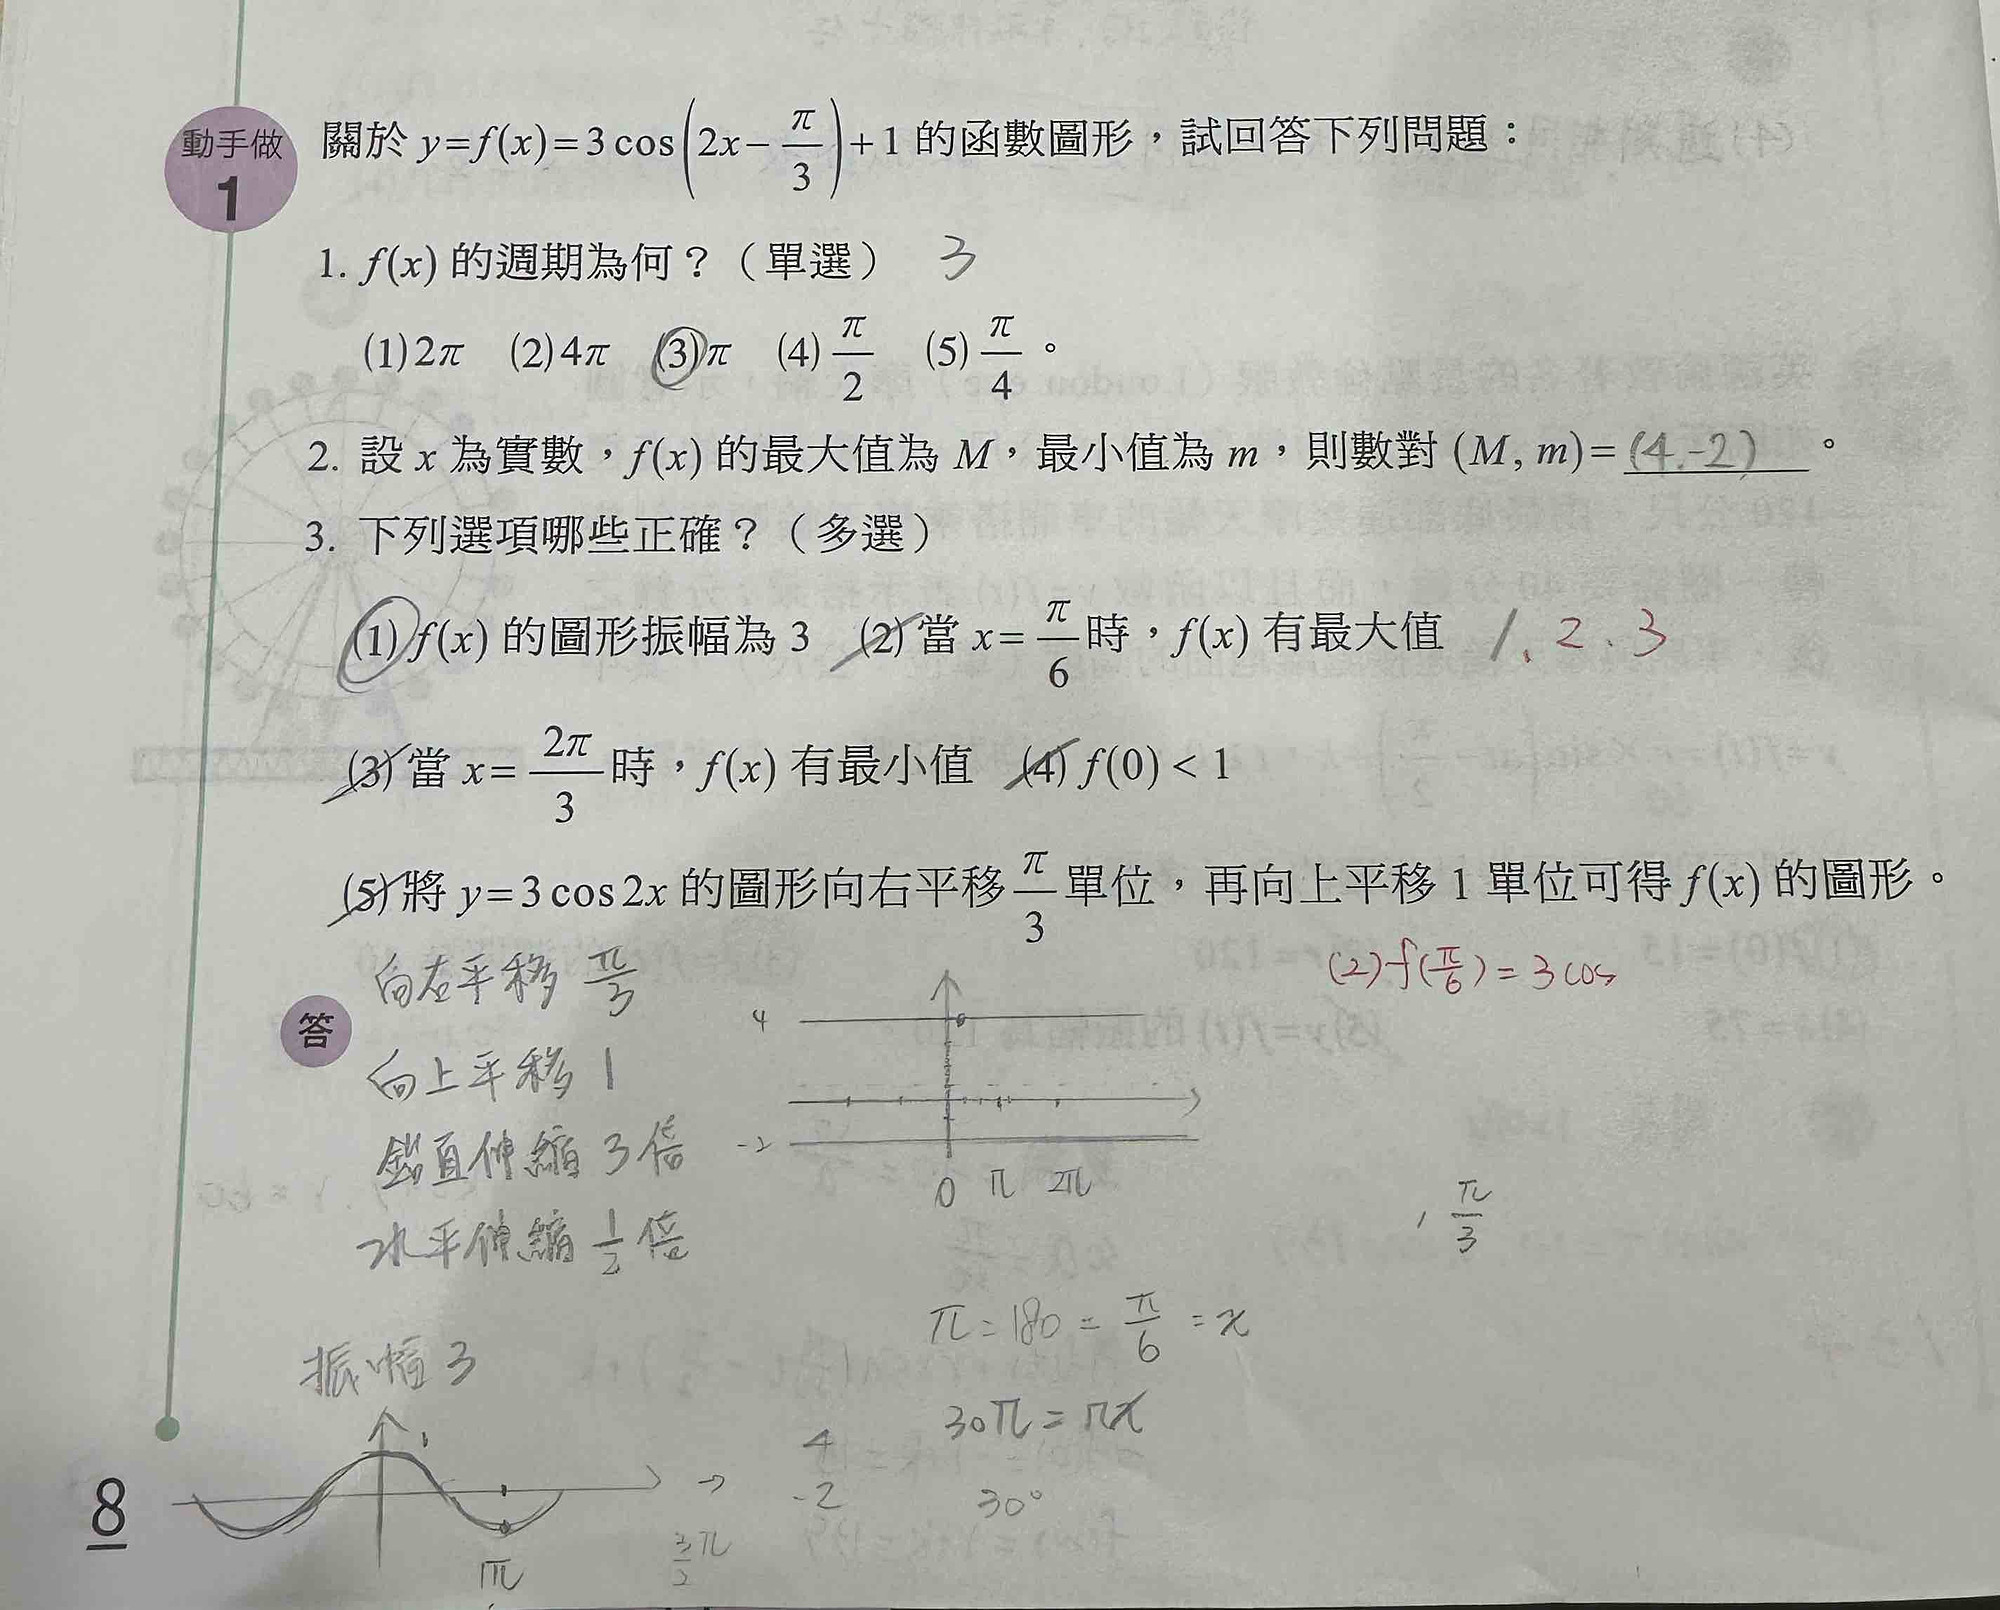 動手做
1
關於 y=f(x)=3 cos(2x-π/3)+1 的函數圖形，試回答下列問題：
1. f(x) 的週期為何？（單選） 3
(1)2π (2)4π (3)π (4)π/2 (5)π/4。
2. 設 x 為實數，f(x) 的最大值為 M，最小值為 m，則數對 (M, m)=(4,-2)。
3. 下列選項哪些正確？（多選）
(1) f(x) 的圖形振幅為 3 (2) 當 x=π/6 時，f(x) 有最大值 1、2、3
(3) 當 x=2π/3 時，f(x) 有最小值 (4) f(0) < 1
(5) 將 y=3 cos 2x 的圖形向右平移 π/3 單位，再向上平移 1 單位可得 f(x) 的圖形。
(2) f(π/6) = 3 cos
向右平移 π/3
答
向上平移 1
鉛直伸縮 3 倍
水平伸縮 1/2 倍
4
-2
0 π 2π
π/3
π = 180 = π/6 = x
30π = πx
30°
振幅 3
1
4
-2
π
3/2 π
8